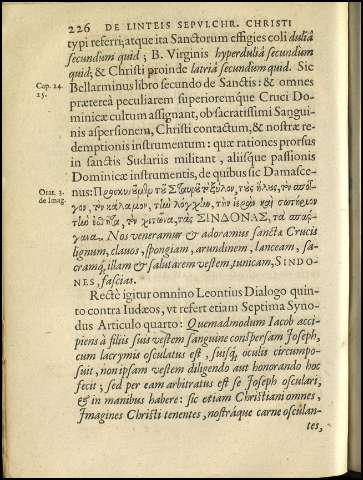 226 DE LINTEIS SEPVLCHR. CHRISTI
typi referri; atque ita Sanctorum effigies coli duliâ
secundum quid; B. Virginis hyperduliâ secundum
quid; & Christi proinde latriâ secundum quid. Sic
Cap. 24.
25.
Bellarminus libro secundo de Sanctis: & omnes
præterea peculiarem superioremque Cruci Do-
minicæ cultum assignant, ob sacratissimi Sangui-
nis aspersionem, Christi contactum, & nostræ re-
demptionis instrumentum: quæ rationes prorsus
in sanctis Sudariis militant, aliisque passionis
Dominicæ instrumentis, de quibus sic Damasce-
Orat. 3.
de Imag.
nus: τὸ ξύλον, τοὺς ἥλους, τὸν
τὸν κάλαμον, τὴν λόγχην, τὴν ἱερὰν καὶ σωτήριον
τὸν χιτῶνα, τὰς ΣΙΝΔΟΝΑΣ, τὰ
Nos veneramur & adoramus sancta Crucis
lignum, clauos, spongiam, arundinem, lanceam, sa-
cramq; illam & salutarem vestem, tunicam, SINDO-
NES, fascias.
Rectè igitur omnino Leontius Dialogo quin-
to contra Iudæos, vt refert etiam Septima Syno-
dus Articulo quarto: Quemadmodum Iacob acci-
piens à filiis suis vestem sanguine conspersam Joseph,
cum lacrymis osculatus est, suisq; oculis circumpo-
suit, non ipsam vestem diligendo aut honorando hoc
fecit; sed per eam arbitratus est se Joseph osculari,
& in manibus habere: sic etiam Christiani omnes,
Imagines Christi tenentes, nostráque carne osculan-
tes,